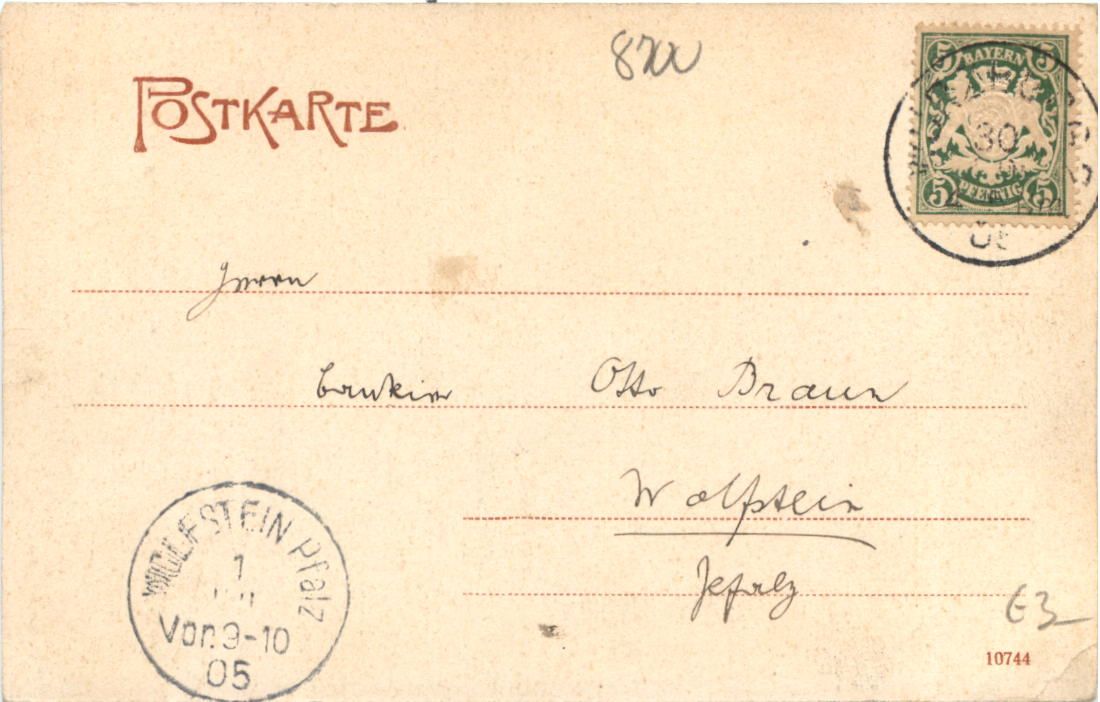 8700
POSTKARTE
5 BAYERN 5
30
5 PFENNIG 5
05
Herrn
Bankier Otto Braun
Wolfstein
Pfalz
WOLFSTEIN Pfalz
1
Vor. 9-10
05
E3
10744